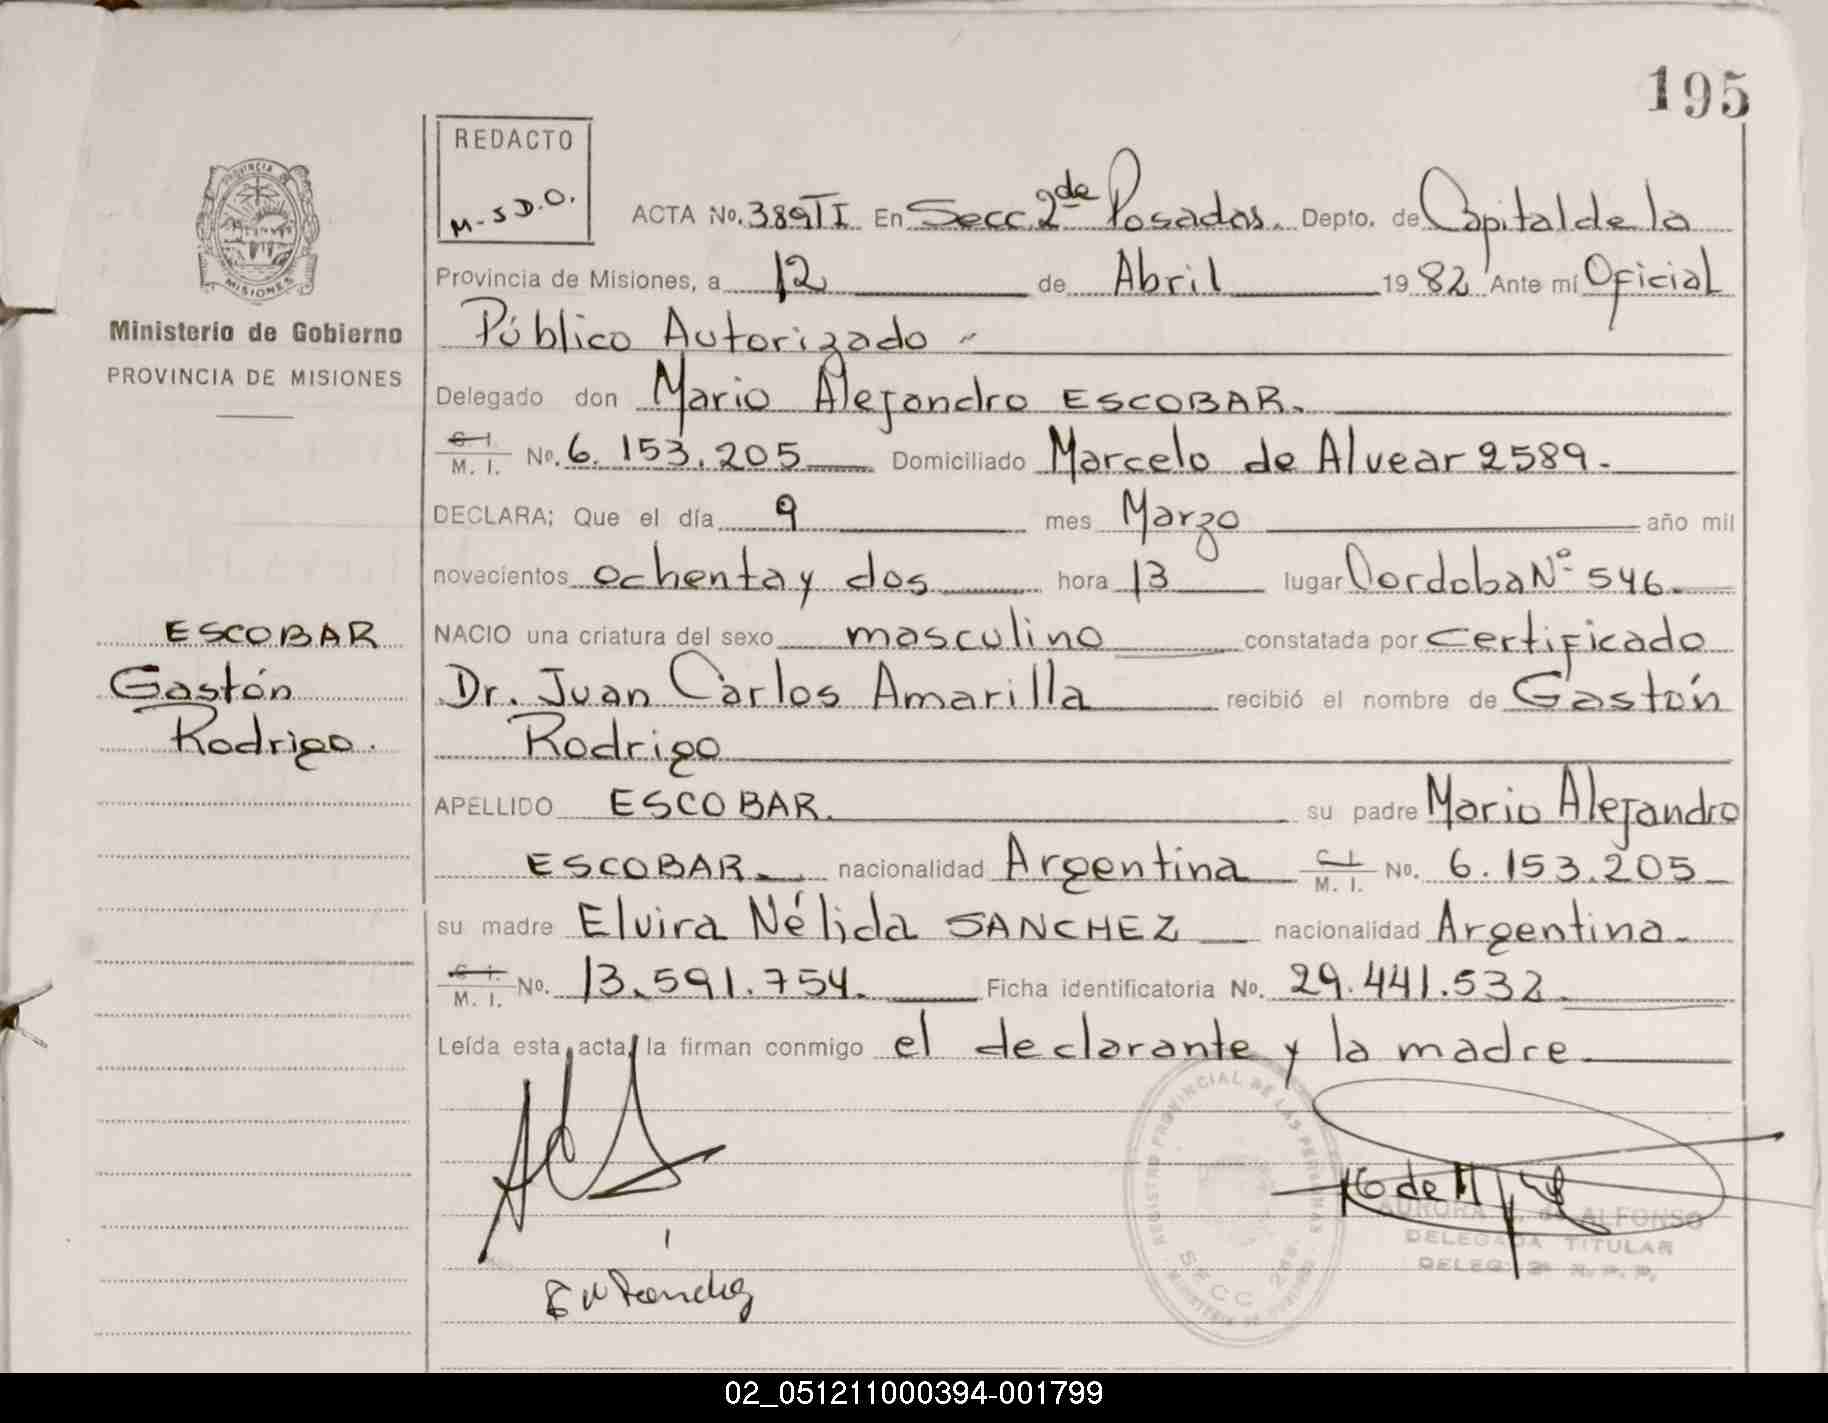 195
REDACTO
M-SD.O.
PROVINCIA
MISIONES
Ministerio de Gobierno
PROVINCIA DE MISIONES
ACTA No. 389TI En Secc. 2da Posadas. Depto. de Capital de la
Provincia de Misiones, a 12 de Abril 1982 Ante mí Oficial
Público Autorizado -
Delegado don Mario Alejandro ESCOBAR.
C. I. M. I. No. 6.153.205 Domiciliado Marcelo de Alvear 2589.
DECLARA; Que el día 9 mes Marzo año mil
novecientos ochenta y dos hora 13 lugar Cordoba Nº 546.
NACIO una criatura del sexo masculino constatada por certificado
Dr. Juan Carlos Amarilla recibió el nombre de Gastón
Rodrigo
ESCOBAR
Gastón
Rodrigo.
APELLIDO ESCOBAR. su padre Mario Alejandro
ESCOBAR. nacionalidad Argentina C. I. M. I. No. 6.153.205
su madre Elvira Nélida SANCHEZ nacionalidad Argentina.
C. I. M. I. No. 13.591.754. Ficha identificatoria No. 29.441.532
Leída esta acta, la firman conmigo el declarante y la madre
REGISTRO PROVINCIAL DE LAS PERSONAS
SECC 2da.
AURORA de ALFONSO
DELEGADA TITULAR
DELEG. 2ª R. P. P.
02_051211000394-001799